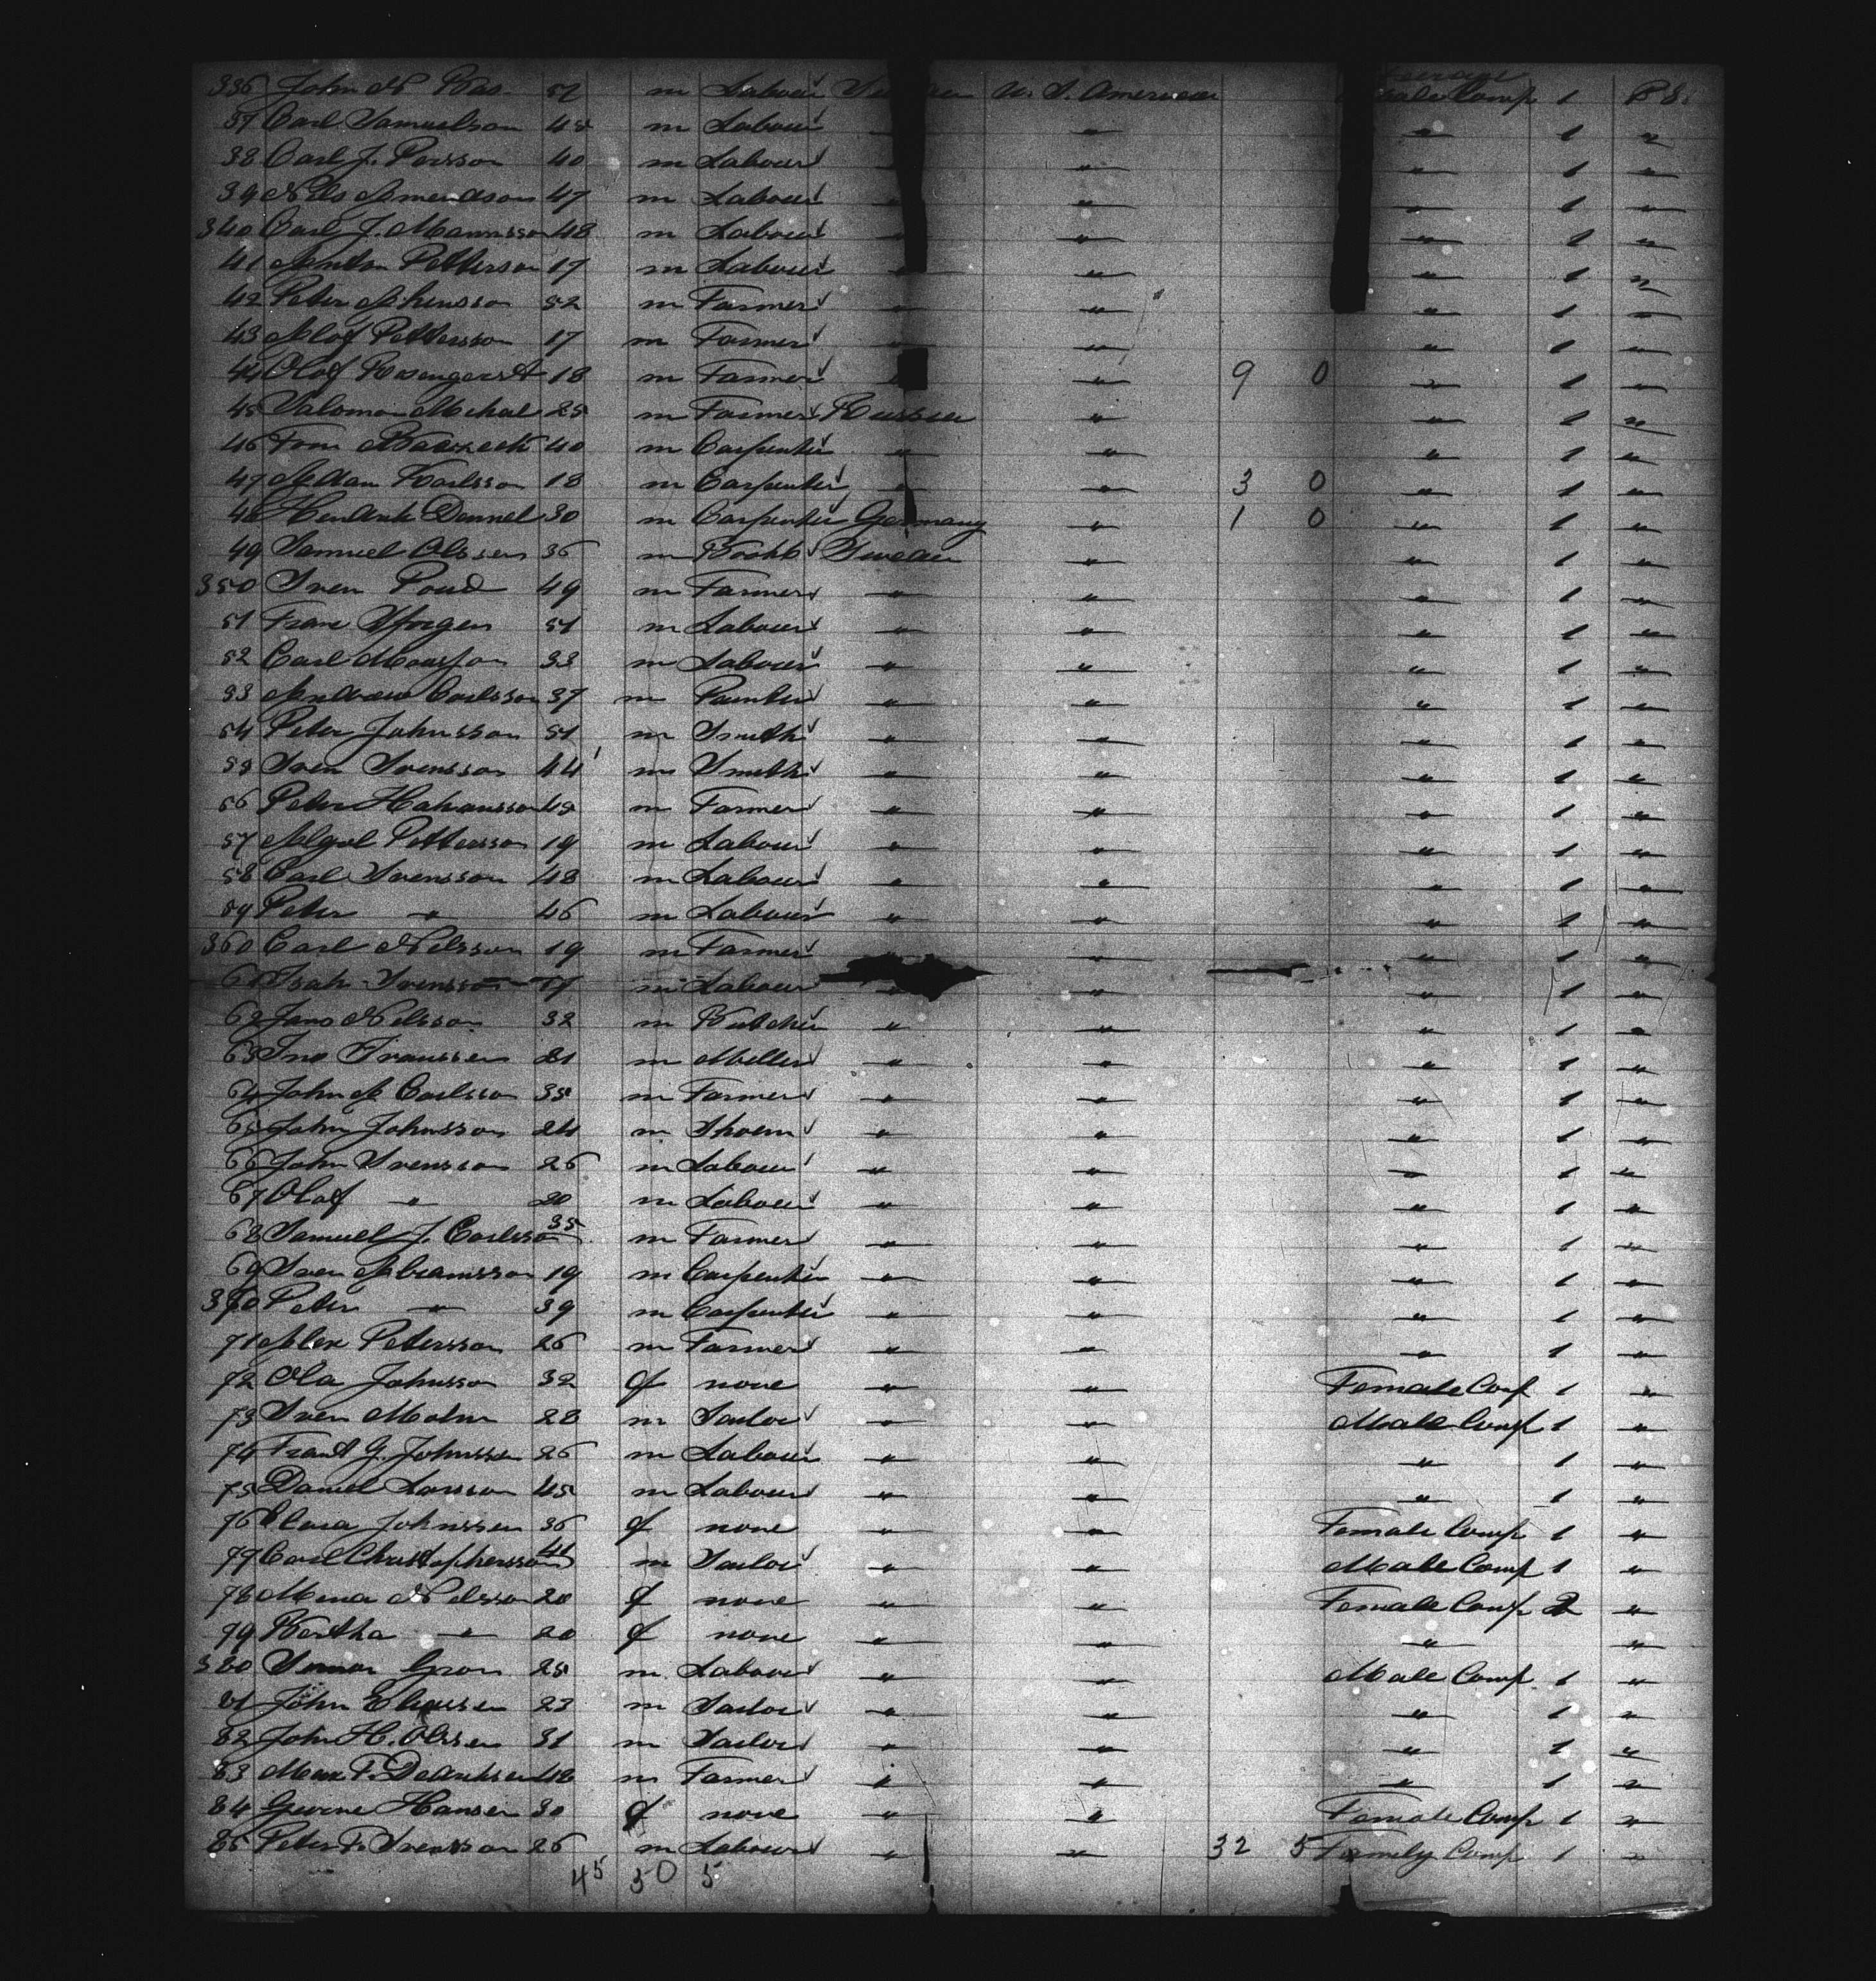 Steerage
336 John N 52 m Labour U. S. America Male Comp 1 P. S.
37 Carl Samuelson 45 m Labour " " " 1 "
38 Carl J. Persson 40 m Labour " " " 1 "
39 Nils 47 m Labour " " " 1 "
340 Carl J. Monnsson 48 m Labour " " " 1 "
41 Anton Petterson 17 m Labour " " " 1 "
42 Peter Johnsson 52 m Farmer " " " 1 "
43 Olof Pettersson 17 m Farmer " " " 1 "
44 Olof 18 m Farmer " " 9 0 " 1 "
45 Salomon Michal 25 m Farmer Russia " " 1 "
46 40 m Carpenter " " " 1 "
47 Adam Karlsson 18 m Carpenter " " 3 0 " 1 "
48 Hendrik Dennel 30 m Carpenter Germany " 1 0 " 1 "
49 Samuel Olssen 36 m Bookb Sweden " " 1 "
350 Sven 49 m Farmer " " " 1 "
51 51 m Labour " " " 1 "
52 Carl 33 m Labour " " " 1 "
53 Andrew Carlsson 37 m Painter " " " 1 "
54 Peter Johnsson 51 m Smith " " " 1 "
55 Sven Svensson 44 m Smith " " " 1 "
56 Peter Hakansson 45 m Farmer " " " 1 "
57 Pettersson 19 m Labour " " " 1 "
58 Carl Svensson 48 m Labour " " " 1 "
59 Peter " 46 m Labour " " " 1 "
360 Carl Nilsson 19 m Farmer " " " 1 "
61 Isak Svensson m Labour " " " 1 "
62 Jans Nilsson 32 m Butcher " " " 1 "
63 21 m Miller " " " 1 "
64 John A Carlsson 35 m Farmer " " " 1 "
65 John Johnsson 24 m Shoem " " " 1 "
66 John Svensson 26 m Labour " " " 1 "
67 Olof " 20 m Labour " " " 1 "
68 Samuel J. Carlsson 35 m Farmer " " " 1 "
69 Sven Abramsson 19 m Carpenter " " " 1 "
370 Peter " 39 m Carpenter " " " 1 "
71 Alex Petersson 26 m Farmer " " " 1 "
72 Ola Johnsson 32 f none " " Female Comp 1 "
73 Sven Malm 28 m Tailor " " Male Comp 1 "
74 G. Johnsson 26 m Labour " " " 1 "
75 Daniel Larsson 45 m Labour " " " 1 "
76 Clara Johnssen 36 f none " " Female Comp 1 "
77 Carl Christophersson 41 m Tailor " " Male Comp 1 "
78 Mina Nelsson 20 f none " " Female Comp 2 "
79 Bertha " 20 f none " " " "
380 25 m Labour " " Male Comp 1 "
81 John 23 m Tailor " " " 1 "
82 John H. Olssen 31 m Tailor " " " 1 "
83 48 m Farmer " " " 1 "
84 Hansen 30 f none " " Female Comp 1 "
85 Peter F. Svensson 26 m Labour " " 32 5 Family Comp 1 "
45 50 5